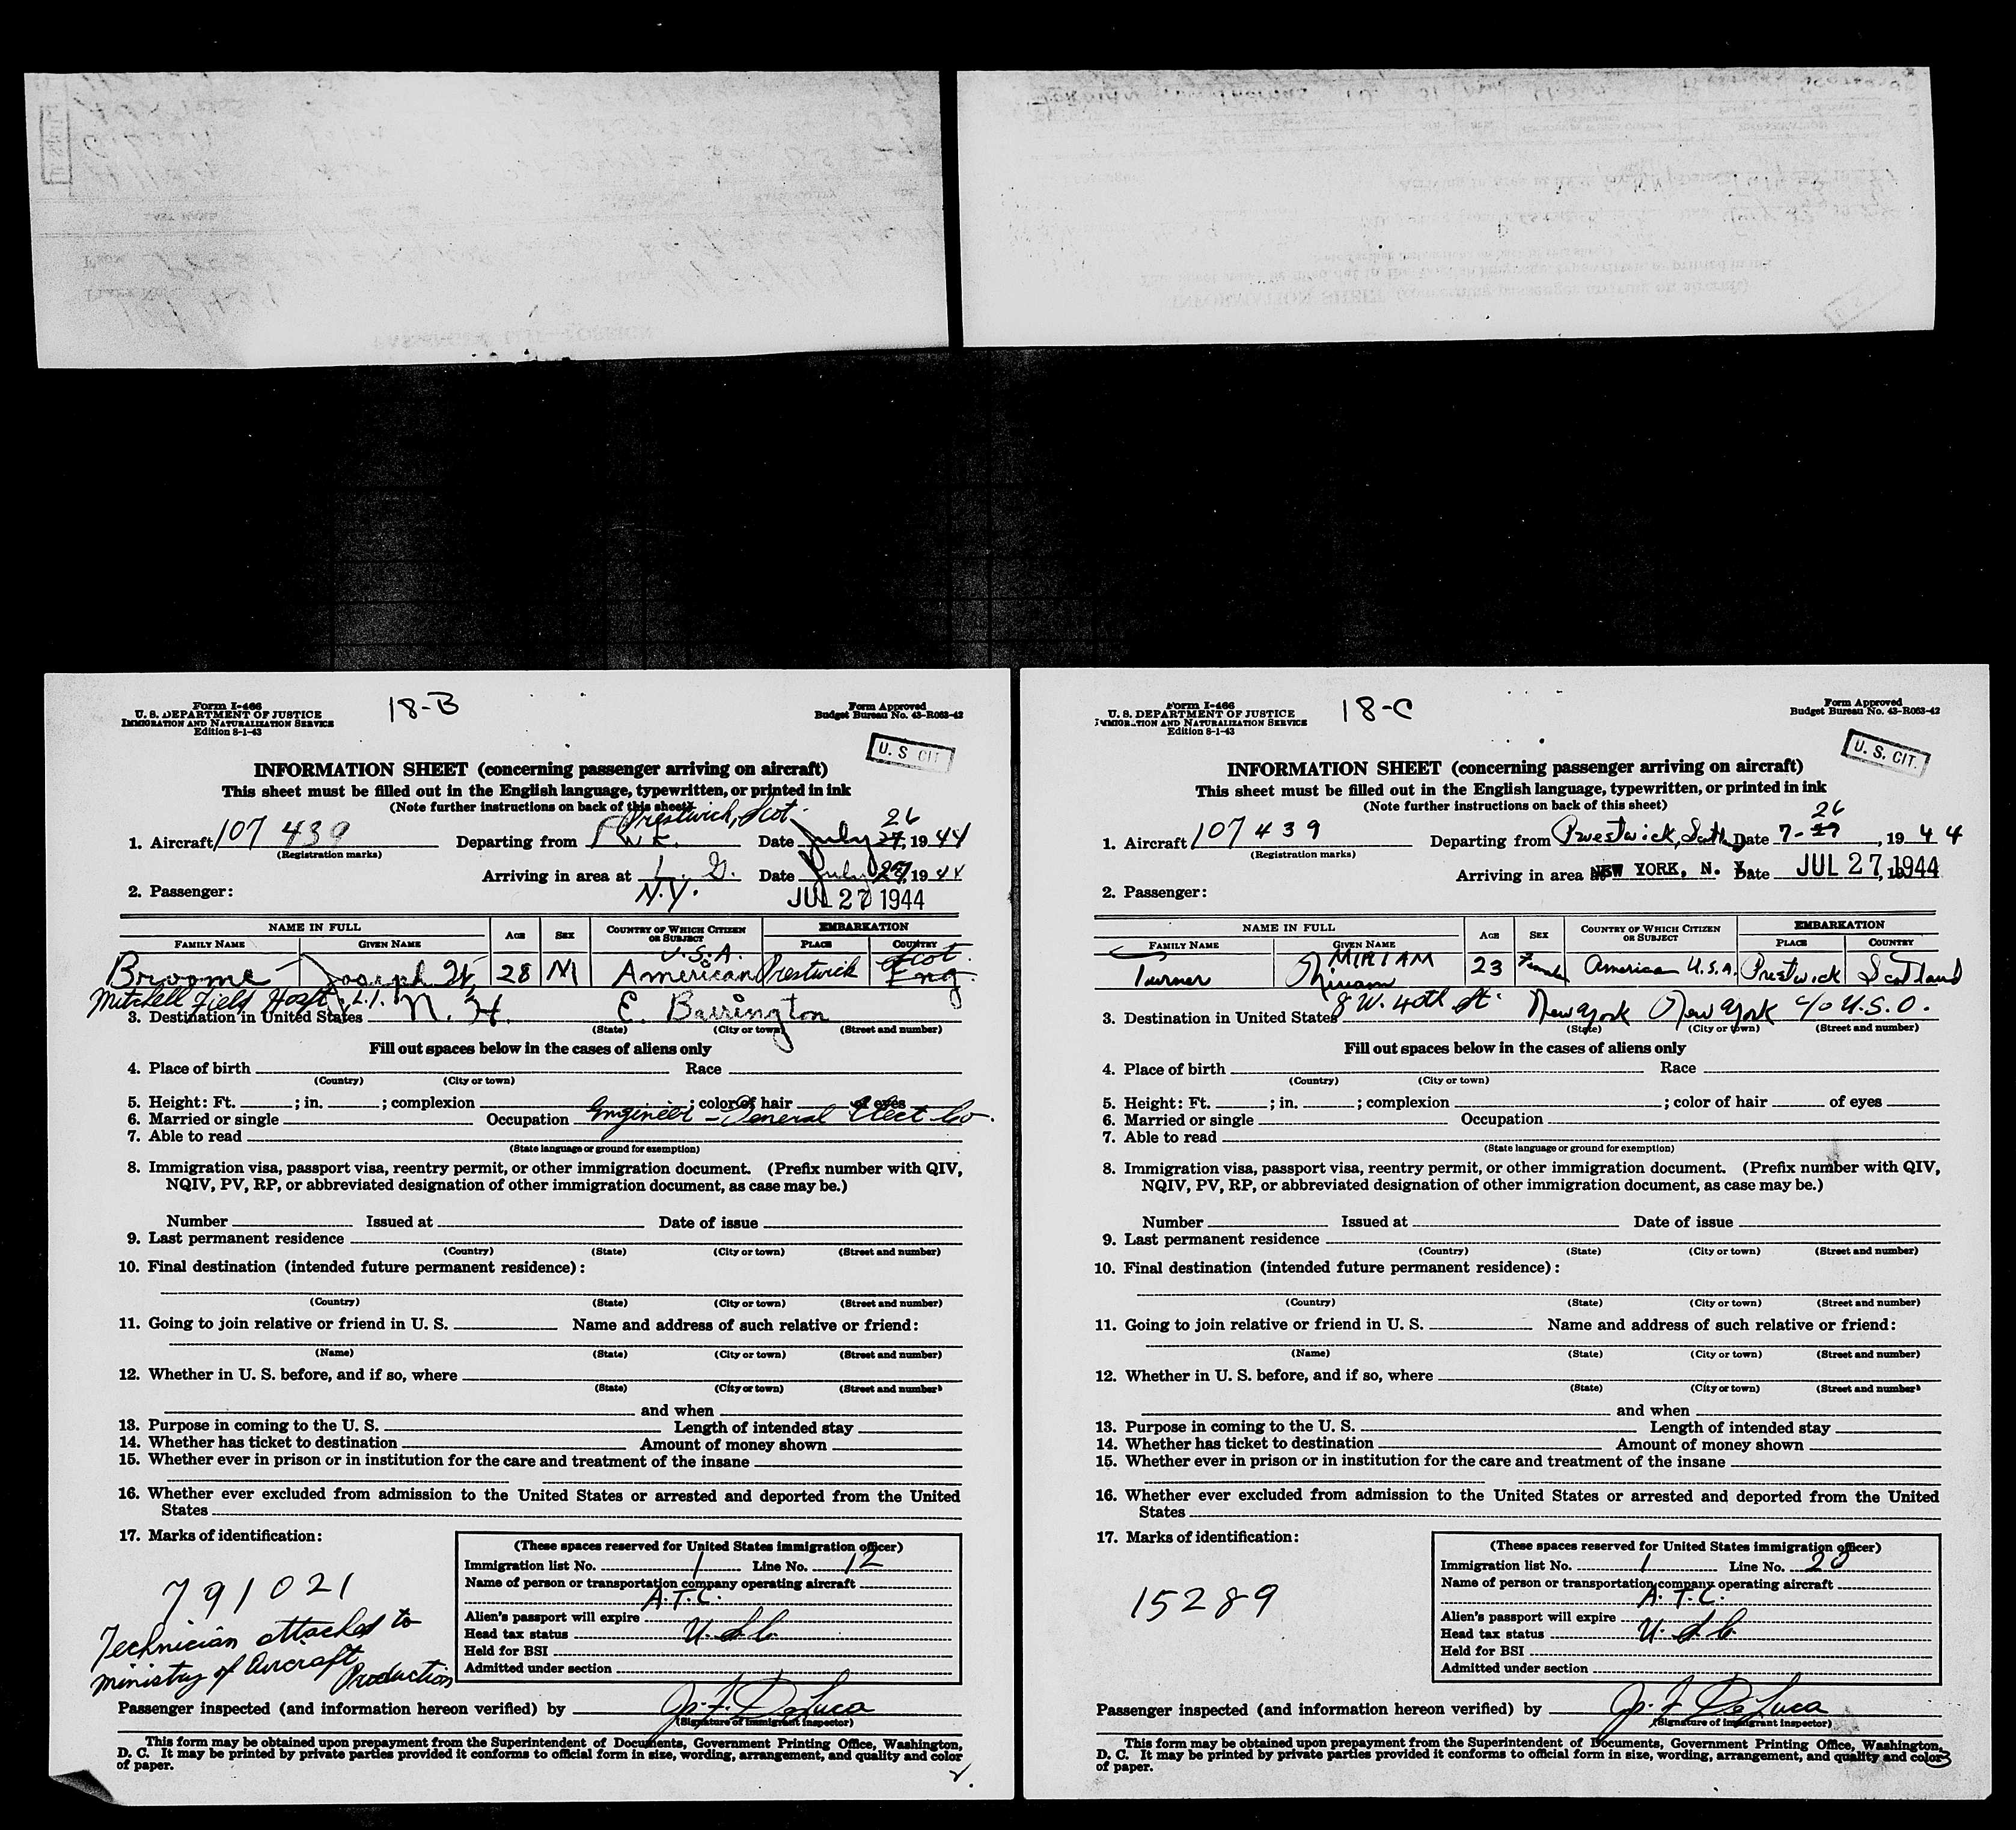 Form I-466
U. S. DEPARTMENT OF JUSTICE
IMMIGRATION AND NATURALIZATION SERVICE
Edition 8-1-43
18-B
Form Approved
Budget Bureau No. 43-R063-42
U. S CIT.
INFORMATION SHEET (concerning passenger arriving on aircraft)
This sheet must be filled out in the English language, typewritten, or printed in ink
(Note further instructions on back of this sheet)
Prestwick, Scot. 26
1. Aircraft 107 439 Departing from Date July 27, 1944
(Registration marks)
Arriving in area at L. G. Date July 27, 1944
N.Y.
2. Passenger: JUL 27 1944
NAME IN FULL AGE SEX COUNTRY OF WHICH CITIZEN OR SUBJECT EMBARKATION
FAMILY NAME GIVEN NAME PLACE COUNTRY
U.S.A. Scot.
Broome Joseph W. 28 M American Prestwick Eng.
Mitchell Field Hosp., L.I.
3. Destination in United States N. H. E. Barrington
(State) (City or town) (Street and number)
Fill out spaces below in the cases of aliens only
4. Place of birth Race
(Country) (City or town)
5. Height: Ft. ; in. ; complexion ; color of hair of eyes
6. Married or single Occupation Engineer - General Elect Co.
7. Able to read
(State language or ground for exemption)
8. Immigration visa, passport visa, reentry permit, or other immigration document. (Prefix number with QIV,
NQIV, PV, RP, or abbreviated designation of other immigration document, as case may be.)
Number Issued at Date of issue
9. Last permanent residence
(Country) (State) (City or town) (Street and number)
10. Final destination (intended future permanent residence):
(Country) (State) (City or town) (Street and number)
11. Going to join relative or friend in U. S. Name and address of such relative or friend:
(Name) (State) (City or town) (Street and number)
12. Whether in U. S. before, and if so, where
(State) (City or town) (Street and number)
and when
13. Purpose in coming to the U. S. Length of intended stay
14. Whether has ticket to destination Amount of money shown
15. Whether ever in prison or in institution for the care and treatment of the insane
16. Whether ever excluded from admission to the United States or arrested and deported from the United
States
17. Marks of identification:
791021
Technician attached to
Ministry of Aircraft
Production
(These spaces reserved for United States immigration officer)
Immigration list No. 1 Line No. 12
Name of person or transportation company operating aircraft
A.T.C.
Alien's passport will expire
Head tax status U.S.C.
Held for BSI
Admitted under section
Passenger inspected (and information hereon verified) by J. F. DeLuca
(Signature of immigrant inspector)
This form may be obtained upon prepayment from the Superintendent of Documents, Government Printing Office, Washington,
D. C. It may be printed by private parties provided it conforms to official form in size, wording, arrangement, and quality and color
of paper.
Form I-466
U. S. DEPARTMENT OF JUSTICE
IMMIGRATION AND NATURALIZATION SERVICE
Edition 8-1-43
18-C
Form Approved
Budget Bureau No. 43-R063-42
U. S. CIT.
INFORMATION SHEET (concerning passenger arriving on aircraft)
This sheet must be filled out in the English language, typewritten, or printed in ink
(Note further instructions on back of this sheet)
26
1. Aircraft 107439 Departing from Prwestwick, Date 7-27, 1944
(Registration marks)
Arriving in area at NEW YORK, N. Y. Date JUL 27, 1944
2. Passenger:
NAME IN FULL AGE SEX COUNTRY OF WHICH CITIZEN OR SUBJECT EMBARKATION
FAMILY NAME GIVEN NAME PLACE COUNTRY
MIRIAM
Turner Miriam 23 Female America U.S.A. Prestwick Scotland
3. Destination in United States 8 W. 40th St. New York New York c/o U.S.O.
(State) (City or town) (Street and number)
Fill out spaces below in the cases of aliens only
4. Place of birth Race
(Country) (City or town)
5. Height: Ft. ; in. ; complexion ; color of hair of eyes
6. Married or single Occupation
7. Able to read
(State language or ground for exemption)
8. Immigration visa, passport visa, reentry permit, or other immigration document. (Prefix number with QIV,
NQIV, PV, RP, or abbreviated designation of other immigration document, as case may be.)
Number Issued at Date of issue
9. Last permanent residence
(Country) (State) (City or town) (Street and number)
10. Final destination (intended future permanent residence):
(Country) (State) (City or town) (Street and number)
11. Going to join relative or friend in U. S. Name and address of such relative or friend:
(Name) (State) (City or town) (Street and number)
12. Whether in U. S. before, and if so, where
(State) (City or town) (Street and number)
and when
13. Purpose in coming to the U. S. Length of intended stay
14. Whether has ticket to destination Amount of money shown
15. Whether ever in prison or in institution for the care and treatment of the insane
16. Whether ever excluded from admission to the United States or arrested and deported from the United
States
17. Marks of identification:
15289
(These spaces reserved for United States immigration officer)
Immigration list No. 1 Line No. 20
Name of person or transportation company operating aircraft
A.T.C.
Alien's passport will expire
Head tax status U.S.C.
Held for BSI
Admitted under section
Passenger inspected (and information hereon verified) by J. F. DeLuca
(Signature of immigrant inspector)
This form may be obtained upon prepayment from the Superintendent of Documents, Government Printing Office, Washington,
D. C. It may be printed by private parties provided it conforms to official form in size, wording, arrangement, and quality and color
of paper.